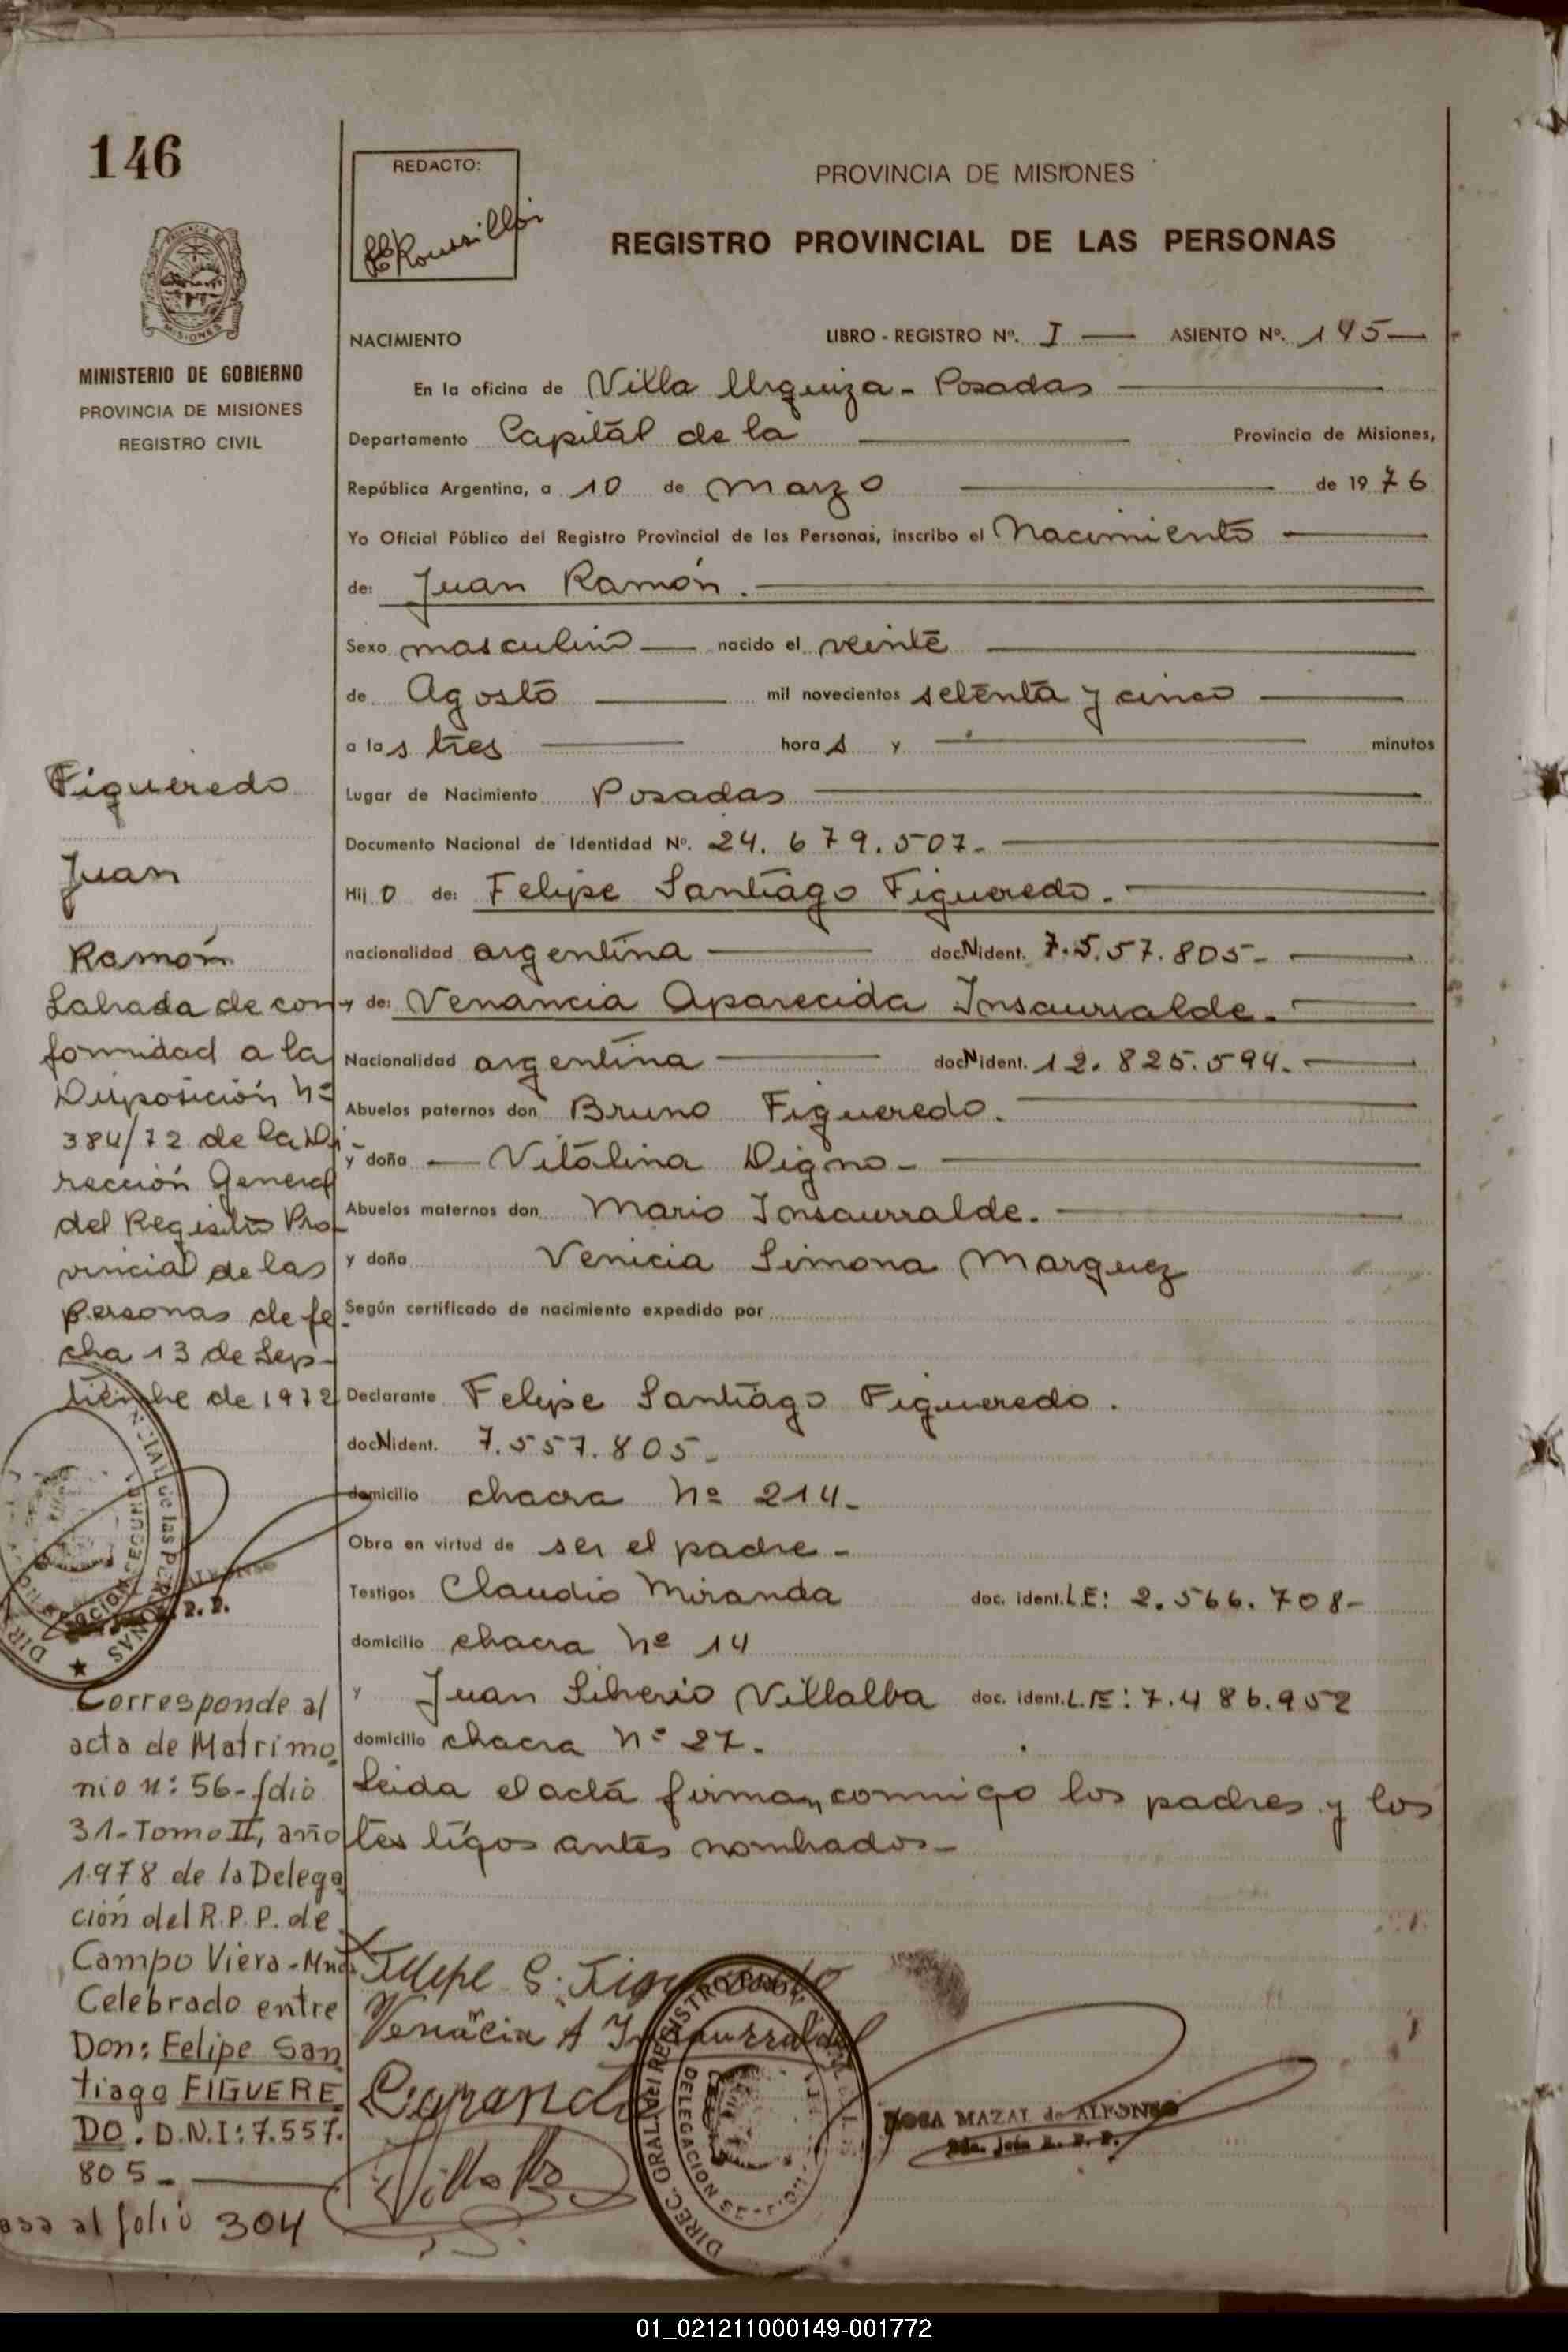 146
REDACTO:
PROVINCIA DE MISIONES
REGISTRO PROVINCIAL DE LAS PERSONAS
MINISTERIO DE GOBIERNO
PROVINCIA DE MISIONES
REGISTRO CIVIL
NACIMIENTO LIBRO - REGISTRO Nº. I — ASIENTO Nº. 145 —
En la oficina de Villa Urquiza - Posadas
Departamento Capitál de la Provincia de Misiones,
República Argentina, a 10 de Marzo de 1976
Yo Oficial Público del Registro Provincial de las Personas, inscribo el Nacimiento
de: Juan Ramón.
Sexo masculino — nacido el veinte
de Agosto mil novecientos setenta y cinco
a las tres horas y minutos
Lugar de Nacimiento Posadas
Documento Nacional de Identidad Nº. 24.679.507-
Hijo de: Felipe Santiago Figueredo.
nacionalidad argentina — doc.N ident. 7.5.57.805-
y de: Venancia Aparecida Insaurralde.
Nacionalidad argentina — docN ident. 12.825.594.
Abuelos paternos don Bruno Figueredo.
y doña — Vitalina Digno -
Abuelos maternos don Mario Insaurralde.
y doña Venicia Simona Marquez
Según certificado de nacimiento expedido por
Declarante Felipe Santiago Figueredo.
docNident. 7.557.805-
domicilio chacra Nº 214-
Obra en virtud de ser el padre -
Testigos Claudio Miranda doc. ident. L.E: 2.566.708-
domicilio chacra Nº 14
y Juan Silverio Villalba doc. ident. L.E: 7.486.952
domicilio chacra Nº 27.
Leida el acta firman conmigo los padres y los
testigos antes nombrados-
Figueredo
Juan
Ramón
Labrada de con-
formidad a la
Disposición Nº
384/72 de la Di-
rección General
del Registro Pro-
vincial de las
Personas de fe-
cha 13 de Sep-
tiembre de 1972
Corresponde al
acta de Matrimo-
nio Nº: 56- folio
31- Tomo II, año
1.978 de la Delega
ción del R.P.P. de
Campo Viera - Mnes
Celebrado entre
Don: Felipe San
tiago FIGUERE
DO. D.N.I: 7.557.
805 -
al folio 304
Felipe S. Figueredo
Venancia A Insaurralde
Villalba
ROSA MAZAL de ALFONSO
01_021211000149-001772